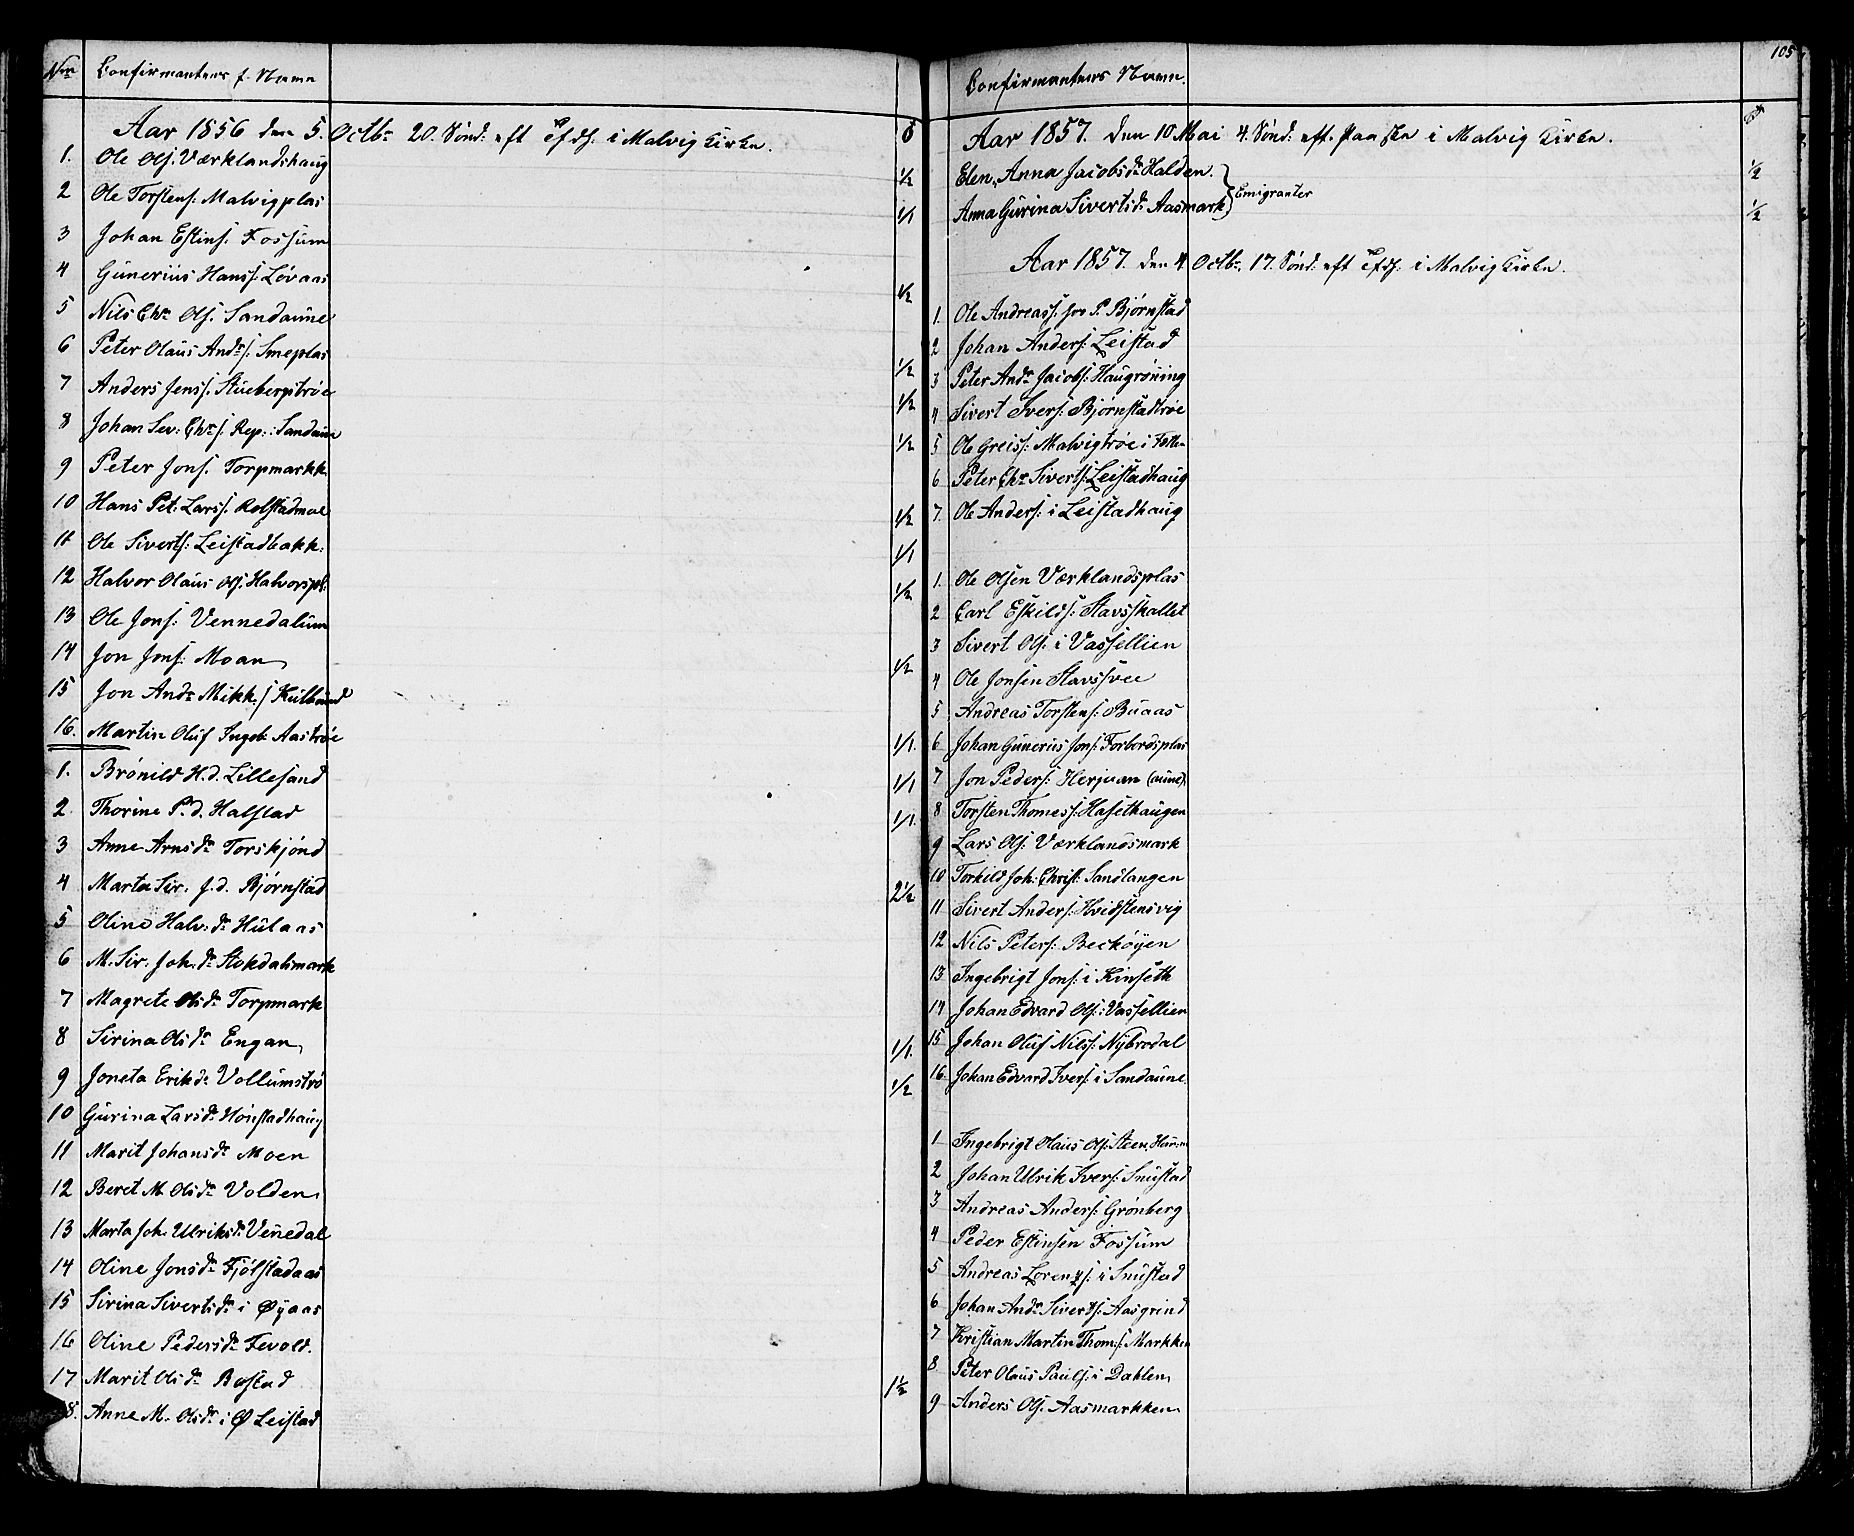 Nro Confirmantens f. Navne
Aar 1856 den 5. Octbr 20. Sønd: eft Tfdg. i Malvig Kirke.
1. Ole Ols. Værklandshaug 1/2
2 Ole Torstens: Malvigplas 1/1
3 Johan Estins. Fossum
4 Gunerius Hanss: Løvaas 1/2
5 Nils Chr Ols. Sandaune
6 Peter Olaus Andrs: Smeplas 1/2
7 Anders Jenss. Stuebergstrøe 1/2
8 Johan Sev: Chrs. Rep: Sandaun 1/2
9 Peter Jons. Torpmarkk
10 Hans Pet. Larss. Rolstadmoe 1/2
11 Ole Siverts: Leistadbakk: 1/1
12 Halvor Olaus Ols. Halvorspl: 1/2
13 Ole Jons: Vennedalum
14 Jon Jons: Moan 1/2
15 Jon Andr Mikk.s Kulbrand
16. Martin Oluf Ingeb: Aastrøe 1/1.
1. Brønild H.d. Lillesand 1/1
2. Thorine P.d. Halstad 1/1.
3 Anne Arnsdr Torskjønd
4 Marta Sir. J.d. Bjørnstad 2 1/2
5 Oline Halv: dr Hulaas
6 M. Sir. Joh. dr Stokdalsmark
7 Magrete Olsdr Torpmark
8 Sirina Olsdr Engan 1/1.
9 Joneta Erikdr Vollumstrø 1/2
10 Gurina Larsdr Hønstadhaug
11 Marit Johansdr Moen
12 Beret M. Olsdr Volden
13 Marta Joh. Ulriksdr Venedal
14 Oline Jonsdr Fjølstadaas
15 Sirina Sivertsdr i Øyaas
16 Oline Pedersdr Fevold.
17 Marit Olsdr Bostad 1 1/2
8. Anne M. Olsdr i Ø Leistad
105
Confirmantens Navne.
Aar 1857. den 10. Mai 4. Sønd: eft. Paaske i Malvig Kirke.
Elen Anna Jacobsdr Halden. 1/2
Anna Gurina Sivertsdr Aasmark } Emigranter 1/2
Aar 1857. den 4 Octbr. 17. Sønd: eft Tfdg. i Malvig Kirke.
1. Ole Andreass. hos P. Bjørnstad
2 Johan Anders: Leistad
3 Peter Andr Jacobs: Haugrøning
4 Sivert Ivers: Bjørnstadtrøe
5 Ole Greiss: Malvigtrøe i Fætten
6 Peter Chr Siverts: Leistadhaug
7. Ole Anders: i Leistadhaug
1. Ole Olsen Værklandsplas
2 Carl Eskilds: Stavsskallet
3 Sivert Ols. i Vassellien
4 Ole Jonsen Stavssvee
5 Andreas Torstens: Buaas
6. Johan Gunerius Jons: Forbordsplas
7 Jon Peders: Herjuan (aune).
8 Torsten Thomess: Hasethaugen
9 Lars Ols: Værklandsmark
10 Torkild Joh: Christ: Sandlangen
11 Sivert Anders: Hvidstensvig
12 Nils Peters: Beckøyen
13. Ingebrigt Jons: i Kinseth
14 Johan Edvard Ols: Vassellien
15 Johan Oluf Nilss: Nybrodal
16. Johan Edvard Ivers: i Sandaune.
1 Ingebrigt Olaus Ols: Steen
2 Johan Ulrik Ivers: Snustad
3 Andreas Anders: Grønberg
4 Peder Estinsen Fossum
5 Andreas Lorenzs: i Snustad
6 Johan Andr Siverts: Aasgrind
7 Kristian Martin Thom:s: Markken
8. Peter Olaus Pauls: i Dahlen
9 Anders Ols. Aasmarkken